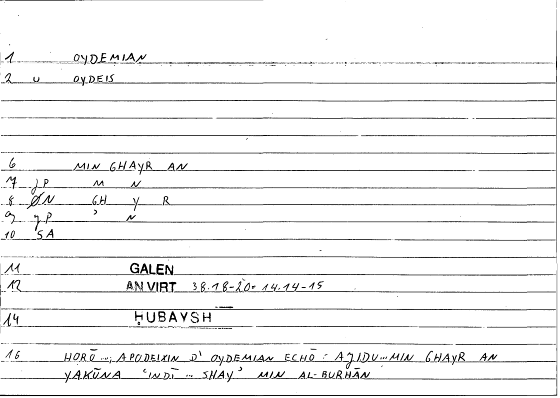 1 OYDEMIAN
2 U OYDEIS
6 MIN GHAYR AN
7 JP M N
8 ØN GH Y R
9 JP ʾ N
10 SA
11 GALEN
12 AN VIRT 38.18-20 = 14.14-15
14 ḤUBAYSH
16 HORŌ ...; APODEIXIN D' OYDEMIAN ECHŌ : AJIDU ... MIN GHAYR AN
YAKŪNA ʿINDĪ ... SHAYʾ MIN AL-BURHĀN